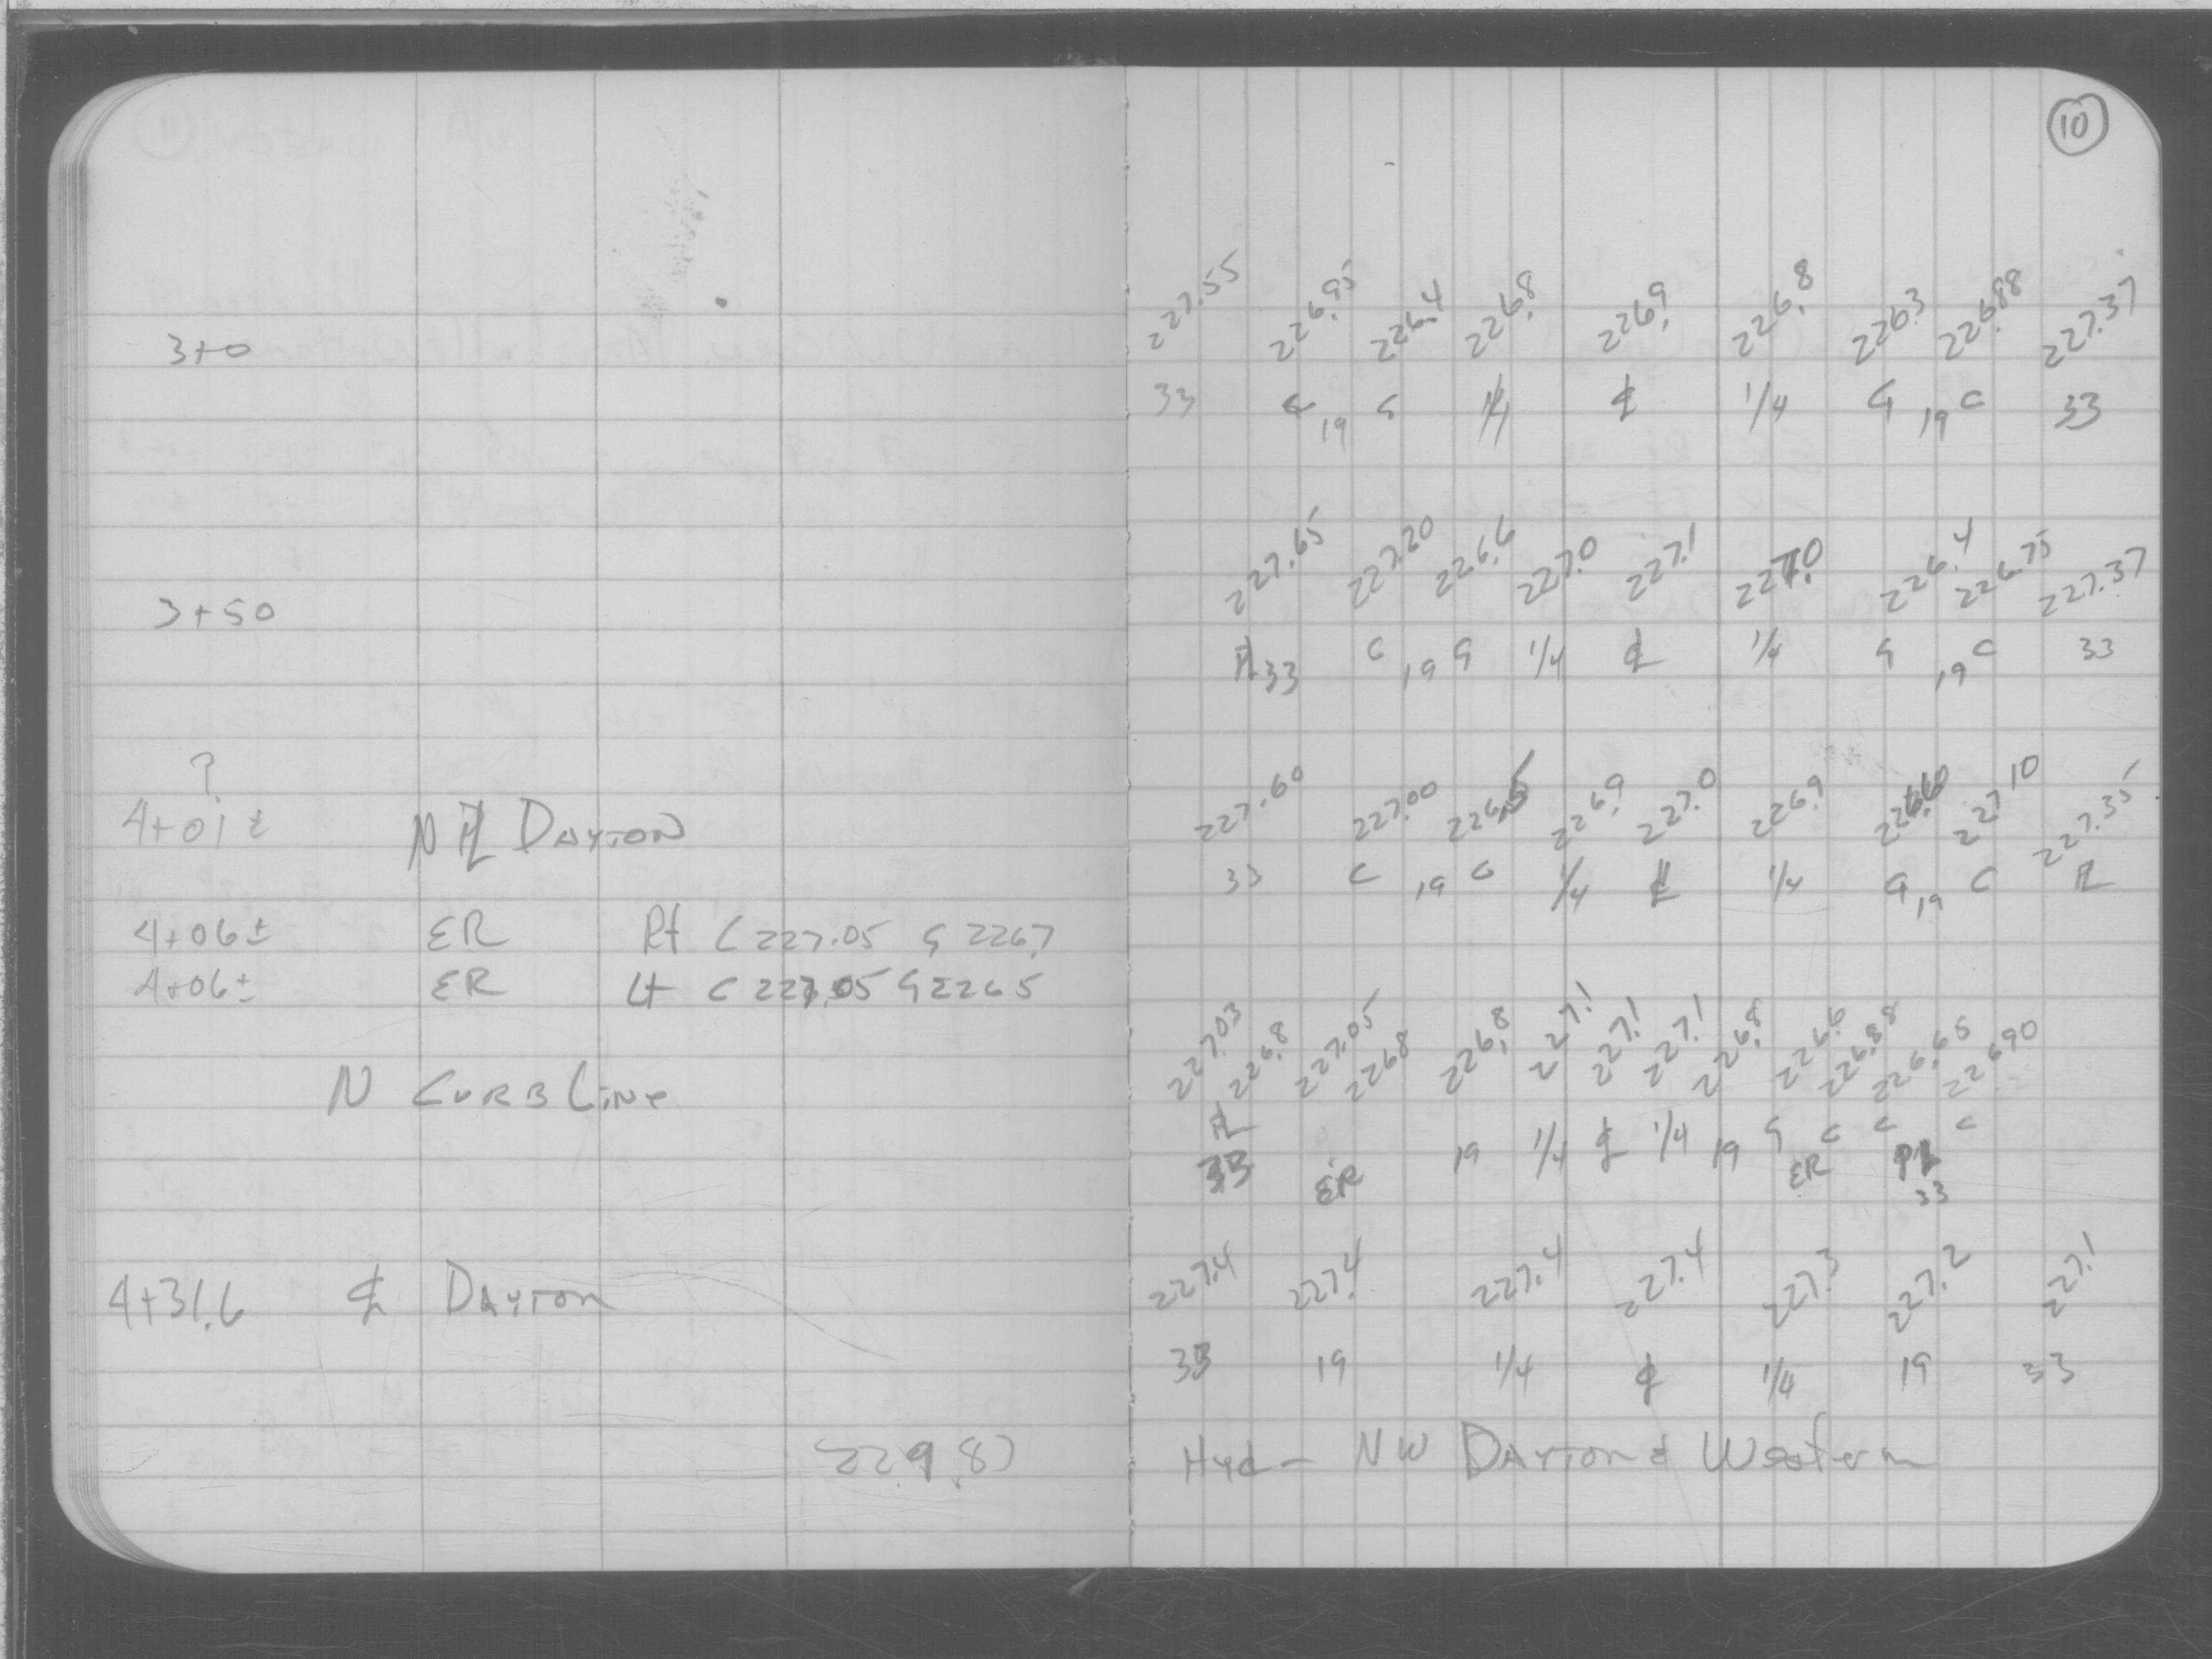 10
227.55 226.95 226.4 226.8 226.9 226.8 226.3 226.88 227.37
3+0
33 C 19 G 1/4 ℄ 1/4 G 19 C 33
227.65 227.20 226.6 227.0 227.1 227.0 226.4 226.75 227.37
3+50
PL 33 C 19 G 1/4 ℄ 1/4 G 19 C 33
?
4+01± N PL DAYTON 227.60 227.00 226.5 226.9 227.0 226.9 226.60 227.10 227.35
33 C 19 G 1/4 ℄ 1/4 G 19 C PL
4+06± ER Rt C 227.05 G 226.7
4+06± ER Lt C 227.05 G 226.5
227.03 226.8 227.05 226.8 226.8 227.1 227.1 227.1 226.8 226.6 226.88 226.65 226.90
N CURB LINE
PL 19 1/4 ℄ 1/4 19 G C C C
33 ER ER PL
33
227.4 227.4 227.4 227.4 227.3 227.2 227.1
4+31.6 ℄ DAYTON
33 19 1/4 ℄ 1/4 19 33
229.87 Hyd - NW DAYTON & Western